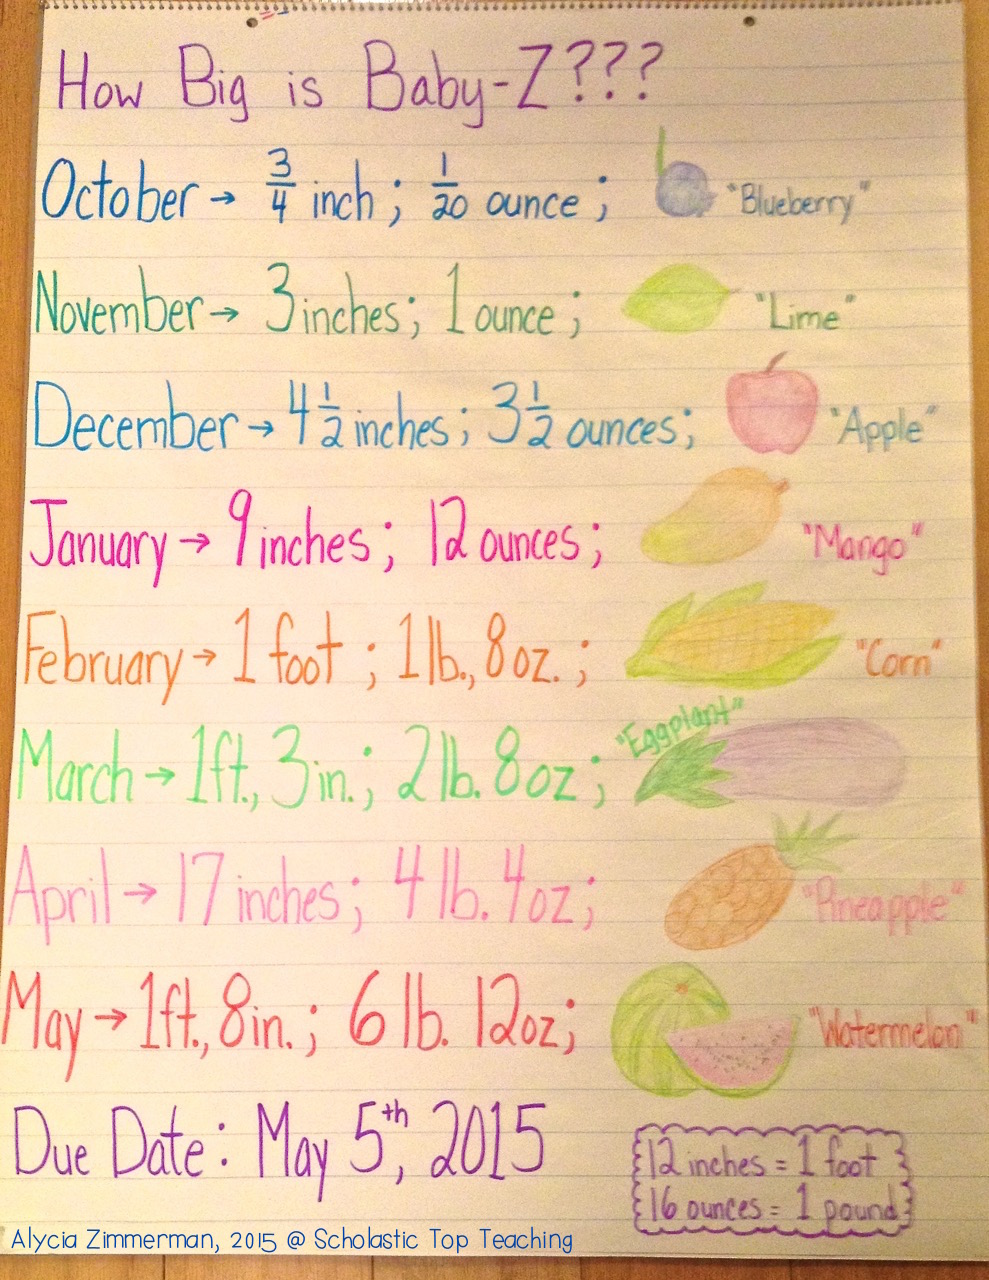 How Big is Baby-Z???
October → 3/4 inch; 1/20 ounce; "Blueberry"
November → 3 inches; 1 ounce; "Lime"
December → 4 1/2 inches; 3 1/2 ounces; "Apple"
January → 9 inches; 12 ounces; "Mango"
February → 1 foot; 1 lb., 8 oz.; "Corn"
March → 1ft., 3in.; 2 lb. 8oz; "Eggplant"
April → 17 inches; 4 lb. 4oz; "Pineapple"
May → 1ft., 8in.; 6 lb. 12oz; "Watermelon"
Due Date: May 5th, 2015
12 inches = 1 foot
16 ounces = 1 pound
Alycia Zimmerman, 2015 @ Scholastic Top Teaching